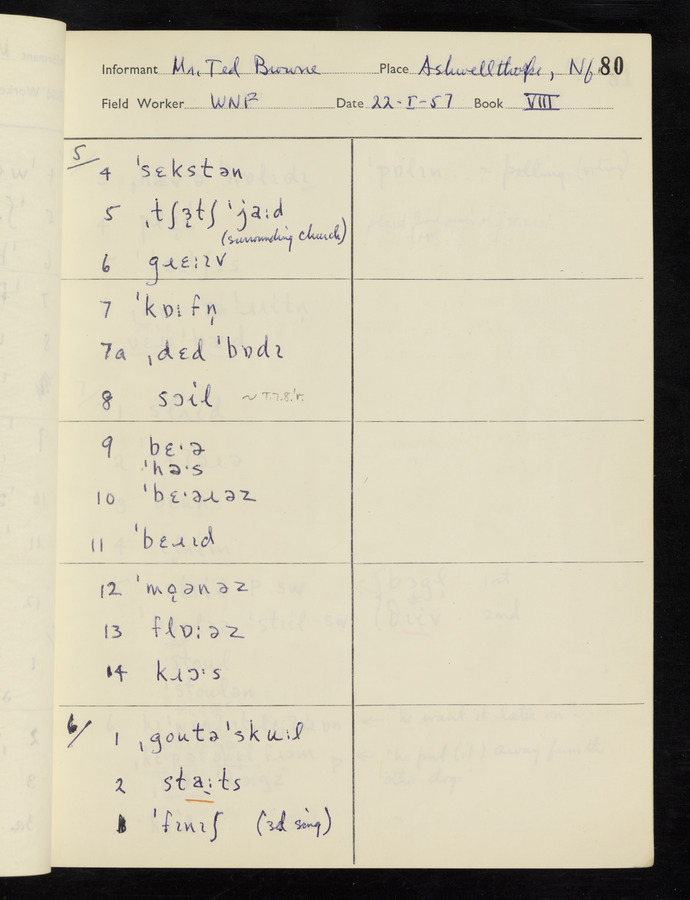 Informant Mr. Ted Browne Place Ashwellthorpe, Nf. 80
Field Worker WNF Date 22-I-57 Book VIII
5/
4 ˈsɛkstən
5 ˌtʃɜ̨tʃ ˈja:d
(surrounding church)
6 gɹɛ:ɪv
7 ˈkɒ:fn̩
7a ˌdɛd ˈbɒdɪ
8 sɔil
9 bɛ·ə
ˈhə·s
10 ˈbɛ·əɹəz
11 ˈbɛɹɪd
12 ˈmǫənəz
13 flɒ:əz
14 kɹɔ·s
6/
1 ˌgoutəˈsku:l
2 sta:ts
3 ˈfɪnɪʃ (3d sing)